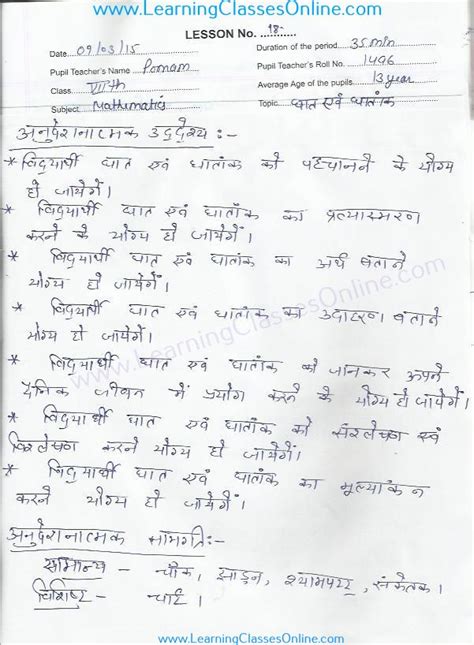 www.LearningClassesOnline.com
LESSON No. 18
Date 09/03/15 Duration of the period 35 min
Pupil Teacher's Name Pomam Pupil Teacher's Roll No. 1496
Class VIIth Average Age of the pupils 13 year
Subject Mathematics Topic घात एवं घातांक
अनुदेशनात्मक उद्देश्य :-
* विद्यार्थी घात एवं घातांक को पहचानने के योग्य
हो जायेगें।
* विद्यार्थी घात एवं घातांक का प्रत्यास्मरण
करने के योग्य हो जायेगें।
* विद्यार्थी घात एवं घातांक का अर्थ बताने
योग्य हो जायेगें।
* विद्यार्थी घात एवं घातांक का उदाहरण बताने
योग्य हो जायेगें।
* विद्यार्थी घात एवं घातांक को जानकर अपने
दैनिक जीवन में प्रयोग करने के योग्य हो जायेगें।
* विद्यार्थी घात एवं घातांक को संश्लेषण एवं
विश्लेषण करने योग्य हो जायेगें।
* विद्यार्थी घात एवं घातांक का मूल्यांकन
करने योग्य हो जायेगें।
www.LearningClassesOnline.com
अनुदेशनात्मक सामग्री:-
सामान्य - चौक, झाड़न, श्यामपट्ट, संकेतक।
विशिष्ट - चार्ट।
www.LearningClassesOnline.com